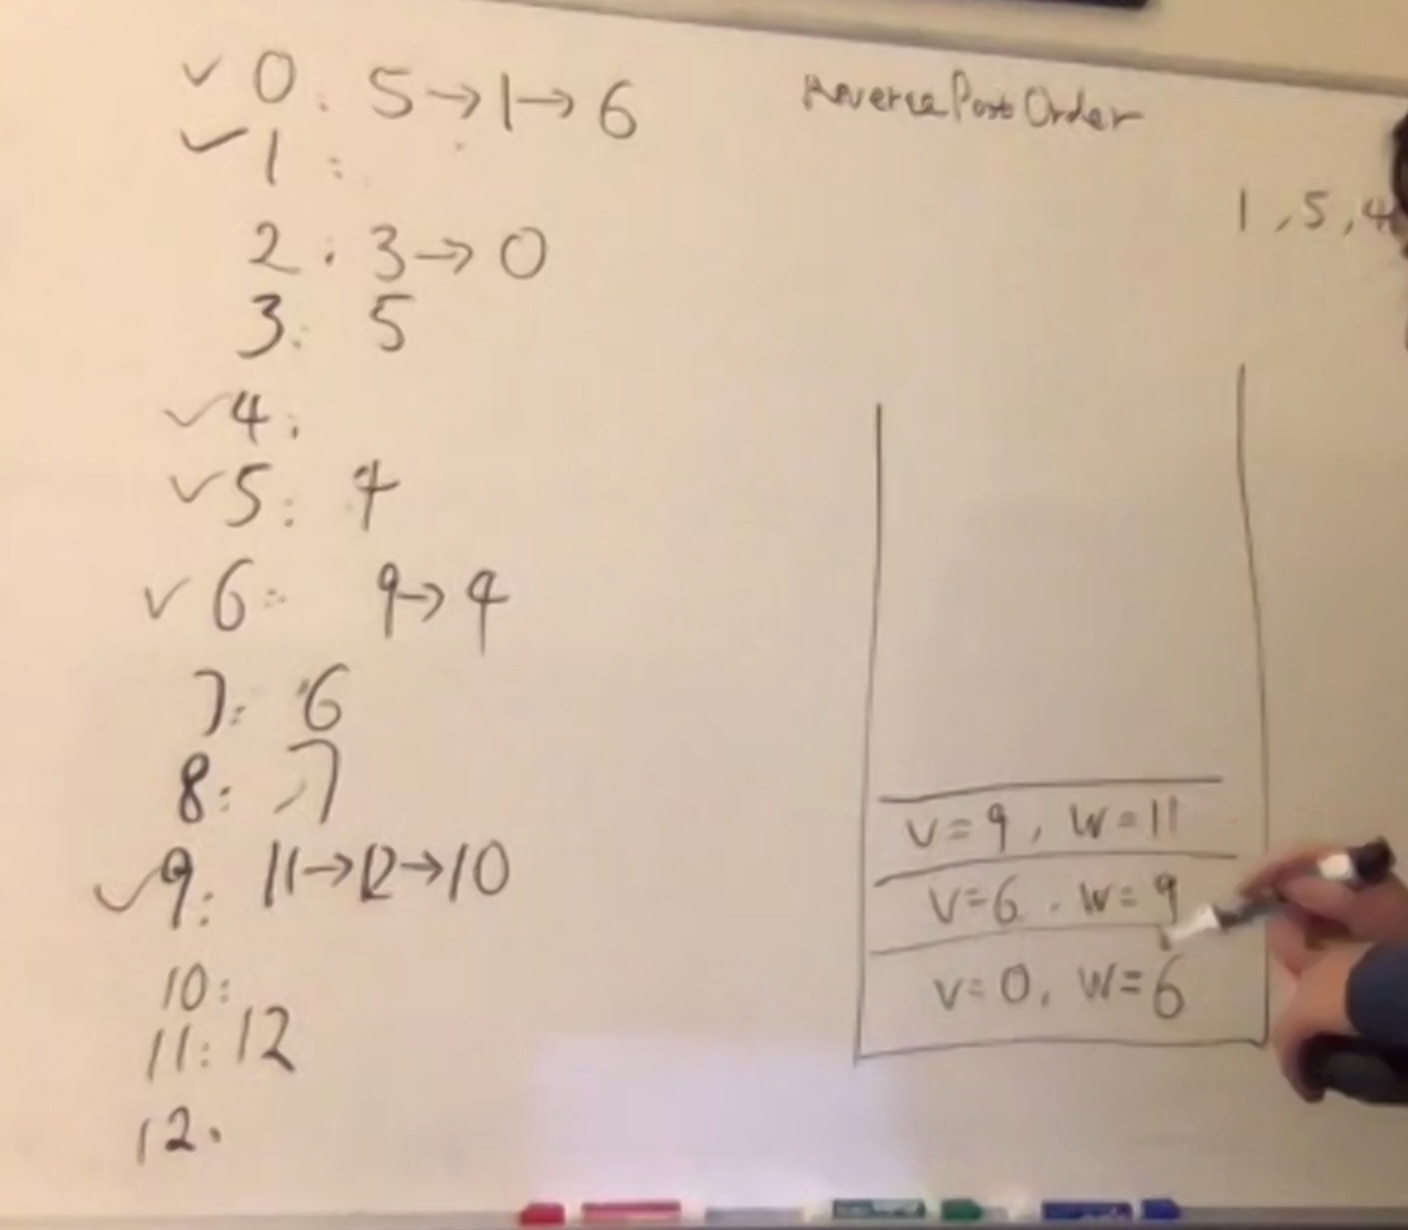 ✓ 0: 5→1→6
✓ 1:
2: 3→0
3: 5
✓ 4:
✓ 5: 4
✓ 6: 9→4
7: 6
8: 7
✓ 9: 11→12→10
10:
11: 12
12:
Reverse Post Order
1, 5, 4
v=9, w=11
v=6, w=9
v=0, w=6